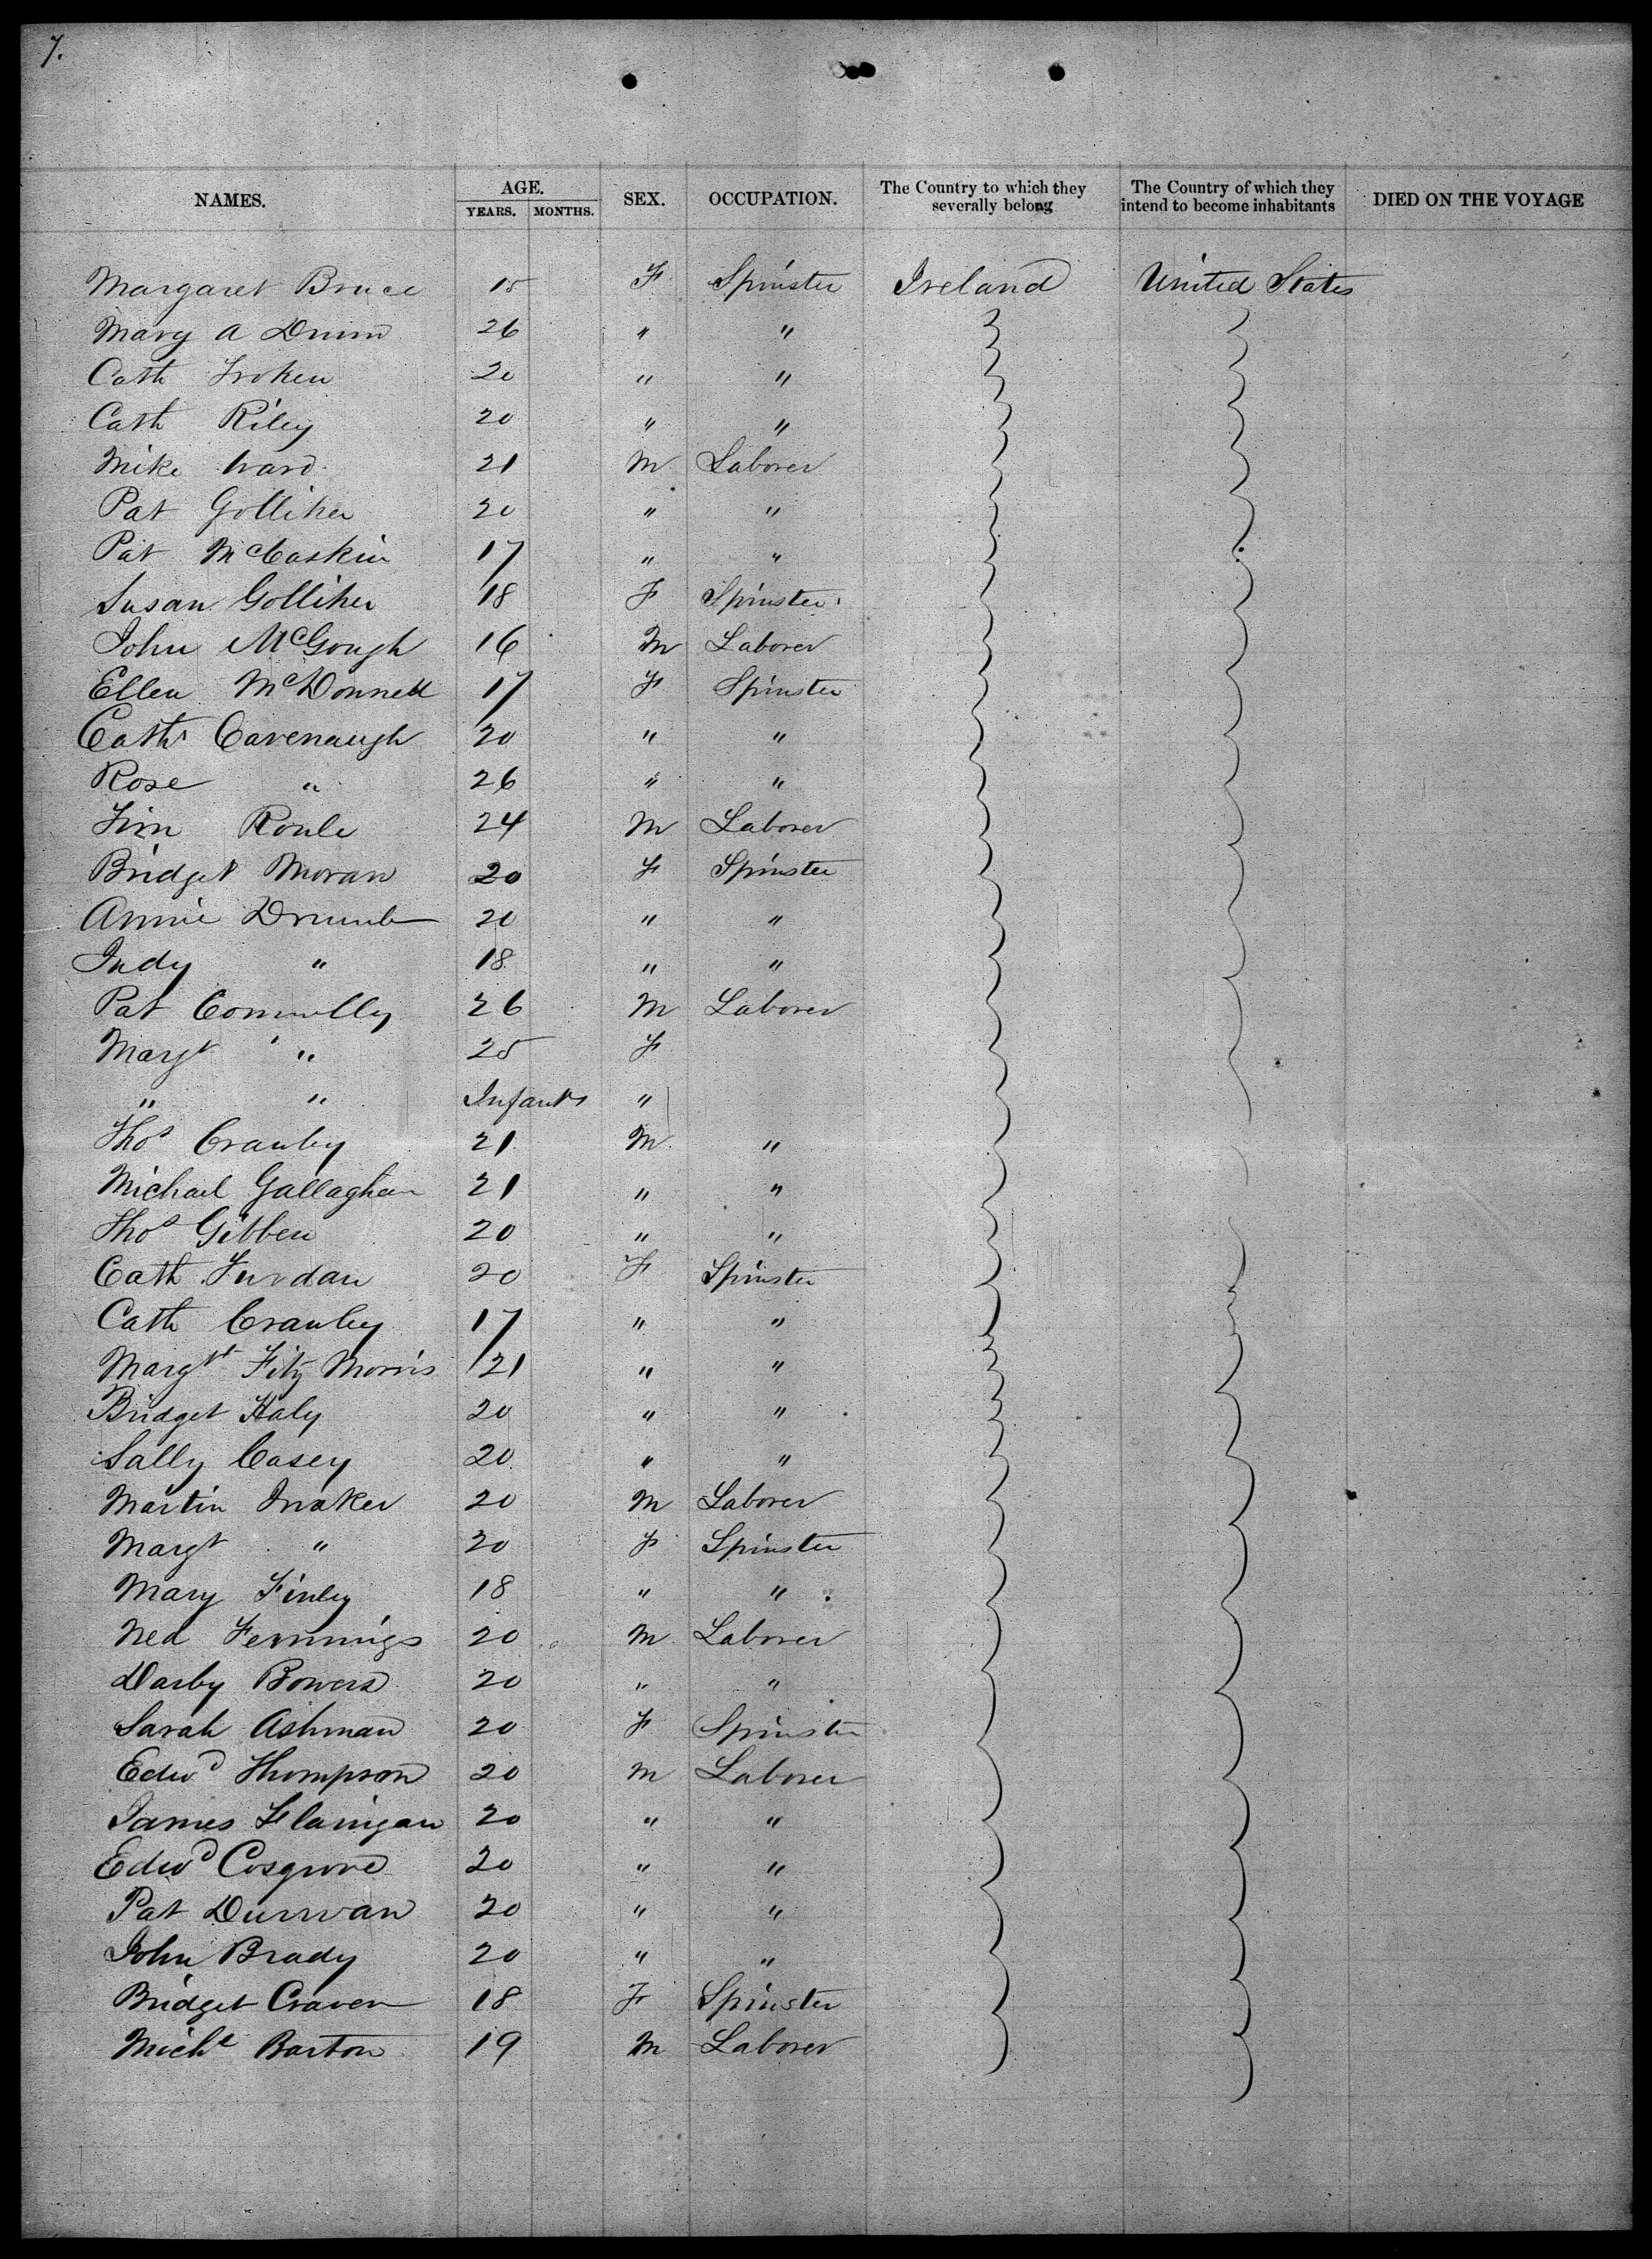 7.
NAMES. AGE. YEARS. MONTHS. SEX. OCCUPATION. The Country to which they severally belong The Country of which they intend to become inhabitants DIED ON THE VOYAGE
Margaret Bruce 15 F Spinster Ireland United States
Mary A Drum 26 " "
Cath 20 " "
Cath Riley 20 " "
Mike Ward 21 M Laborer
Pat Golliher 20 " "
Pat McCaskin 17 " "
Susan Golliher 18 F Spinster
John McGough 16 M Laborer
Ellen McDonnell 17 F Spinster
Cath Cavenaugh 20 " "
Rose " 26 " "
Tim Roule 24 M Laborer
Bridget Moran 20 F Spinster
Annie Drumb 20 " "
Judy " 18 " "
Pat Connolly 26 M Laborer
Margt " 25 F
" " Infants "
Thos Cranley 21 M "
Michael Gallaghan 21 " "
Thos Gibben 20 " "
Cath Jurdan 20 F Spinster
Cath Cranley 17 " "
Margt Fitz Morris 21 " "
Bridget Haly 20 " "
Sally Casey 20 " "
Martin 20 M Laborer
Margt " 20 F Spinster
Mary Finley 18 " "
Ned Jennings 20 M Laborer
Darby Bowers 20 " "
Sarah Ashman 20 F Spinster
Edwd Thompson 20 M Laborer
James Flanigan 20 " "
Edwd Cosgrove 20 " "
Pat Durivan 20 " "
John Brady 20 " "
Bridget Craven 18 F Spinster
Michl Barton 19 M Laborer